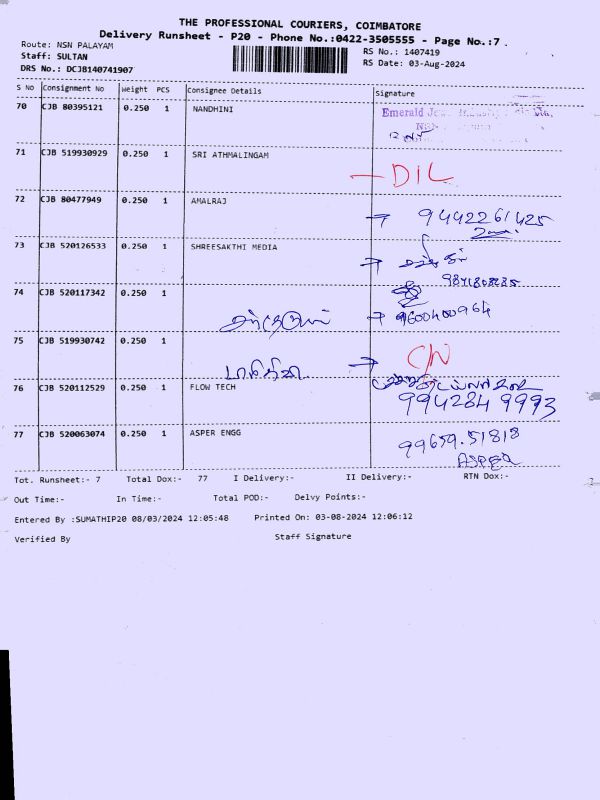 THE PROFESSIONAL COURIERS, COIMBATORE
Delivery Runsheet - P20 - Phone No.:0422-3505555 - Page No.:7 .
Route: NSN PALAYAM
RS No.: 1407419
Staff: SULTAN
RS Date: 03-Aug-2024
DRS No.: DCJB140741907
S No Consignment No Weight PCS Consignee Details Signature
70 CJB 80395121 0.250 1 NANDHINI
Emerald
71 CJB 519930929 0.250 1 SRI ATHMALINGAM
DIL
72 CJB 80477949 0.250 1 AMALRAJ
9442261425
73 CJB 520126533 0.250 1 SHREESAKTHI MEDIA
74 CJB 520117342 0.250 1
9600400964
75 CJB 519930742 0.250 1
C/N
76 CJB 520112529 0.250 1 FLOW TECH
994284 9993
77 CJB 520063074 0.250 1 ASPER ENGG
99659.51818
ASPER
Tot. Runsheet:- 7 Total Dox:- 77 I Delivery:- II Delivery:- RTN Dox:-
Out Time:- In Time:- Total POD:- Delvy Points:-
Entered By :SUMATHIP20 08/03/2024 12:05:48 Printed On: 03-08-2024 12:06:12
Verified By Staff Signature